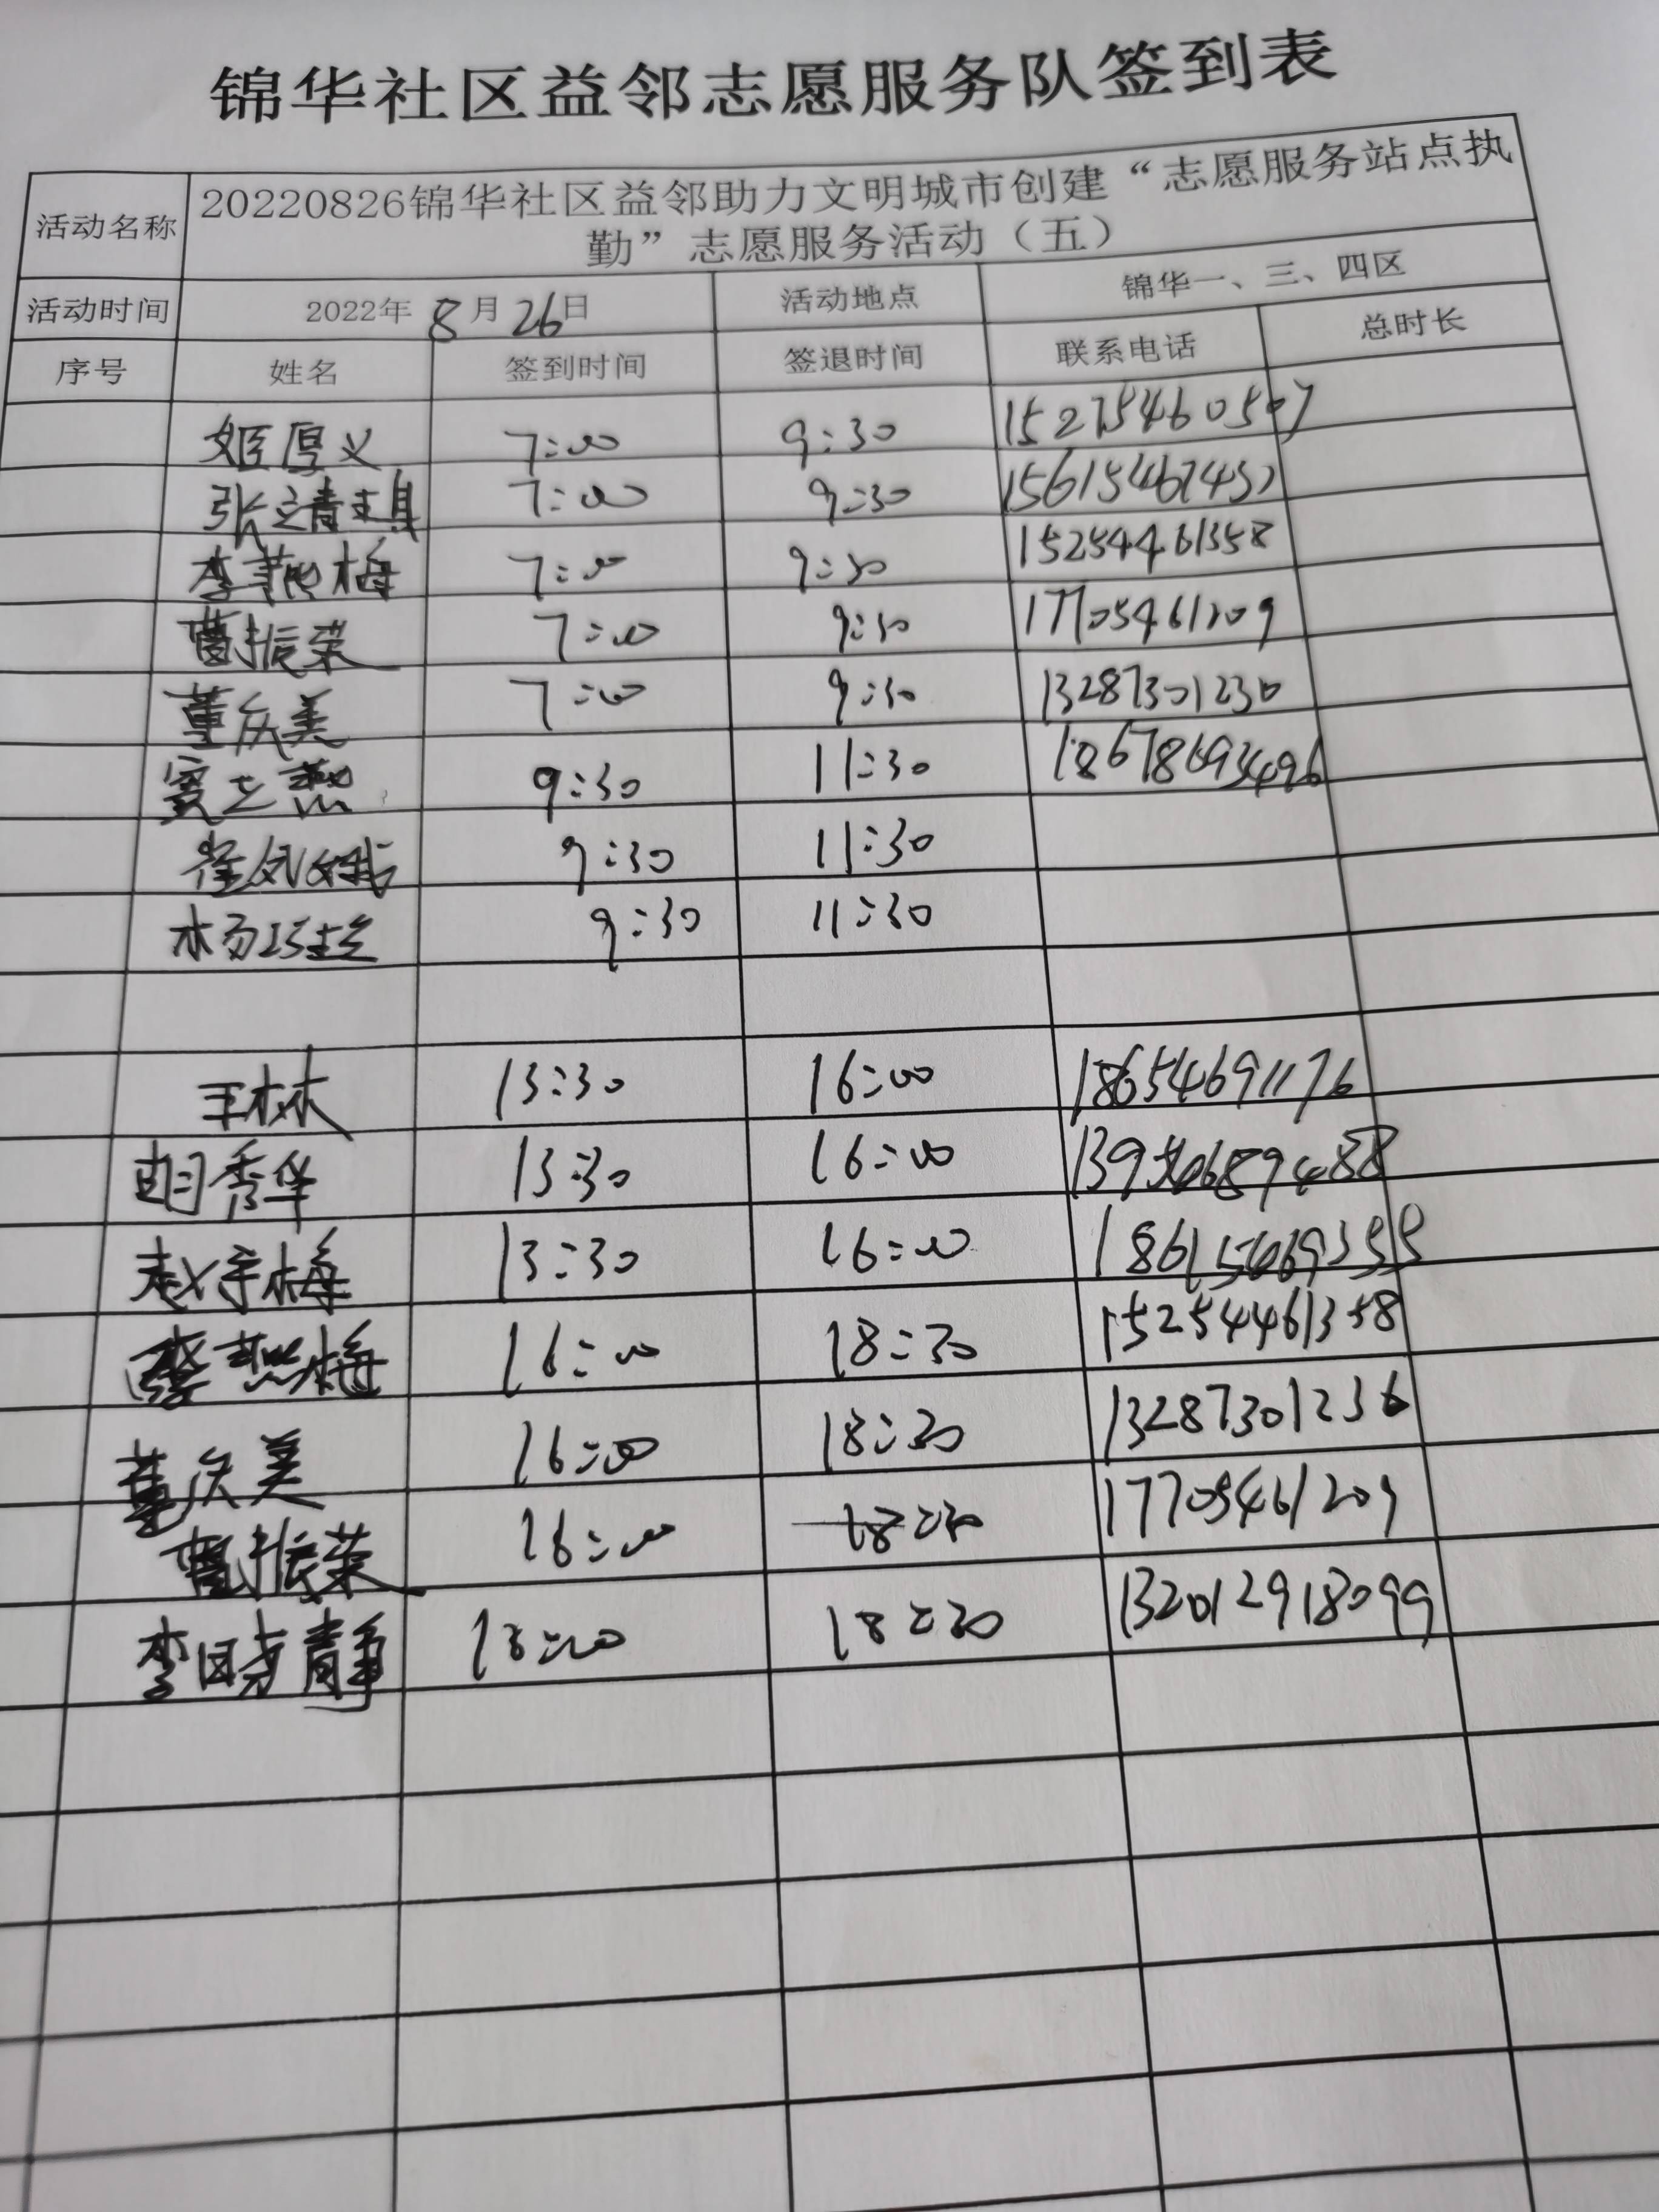 锦华社区益邻志愿服务队签到表
活动名称 20220826锦华社区益邻助力文明城市创建“志愿服务站点执
勤”志愿服务活动（五）
活动时间 2022年 8 月 26 日 活动地点 锦华一、三、四区
序号 姓名 签到时间 签退时间 联系电话 总时长
姬厚义 7:00 9:30 15275460507
张 7:00 9:30
李艳梅 7:00 9:30 15254461358
曹振荣 7:00 9:30 17705461209
董庆美 7:00 9:30 13287301230
窦立燕 9:30 11:30 18678693496
崔凤娥 9:30 11:30
杨巧 9:30 11:30
王林 13:30 16:00 18654691176
胡秀华 13:30 16:00
赵梅 13:30 16:00
李燕梅 16:00 18:30 15254461358
董庆美 16:00 18:30 13287301236
曹振荣 16:00 18:30 17705461209
李静 18:30 132012918099